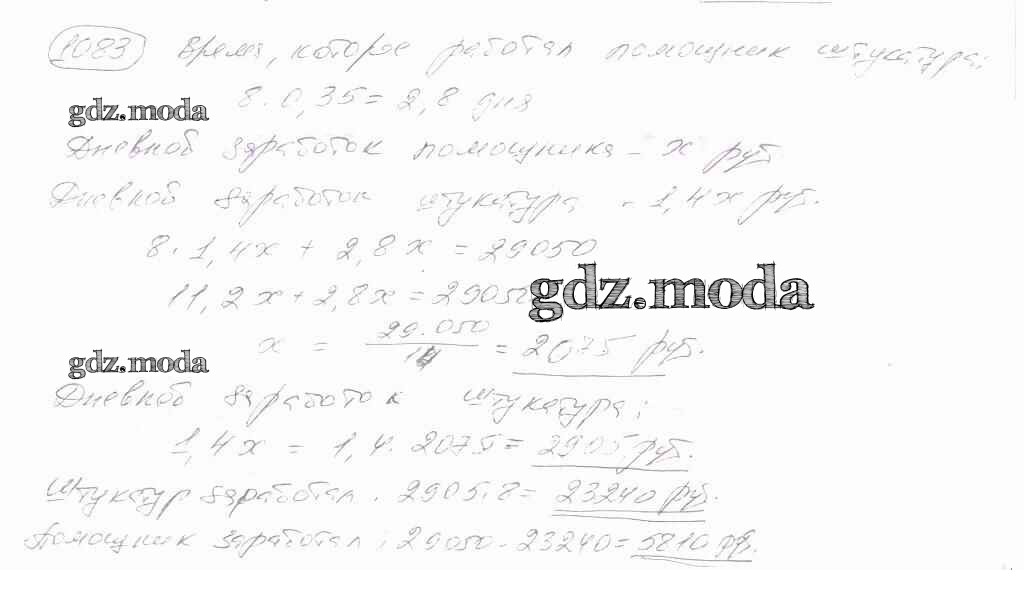 1083 Время, которое работал помощник штукатура:
8·0,35=2,8 дня
gdz.moda
Дневной заработок помощника - x руб
Дневной заработок штукатура - 1,4x руб.
8·1,4x + 2,8x = 29050
11,2x + 2,8x = 29050
gdz.moda
x = 29.050/14 = 2075 руб.
gdz.moda
Дневной заработок штукатура:
1,4x = 1,4·2075 = 2905 руб.
Штукатур заработал: 2905·8= 23240 руб.
Помощник заработал: 29050-23240=5810 руб.